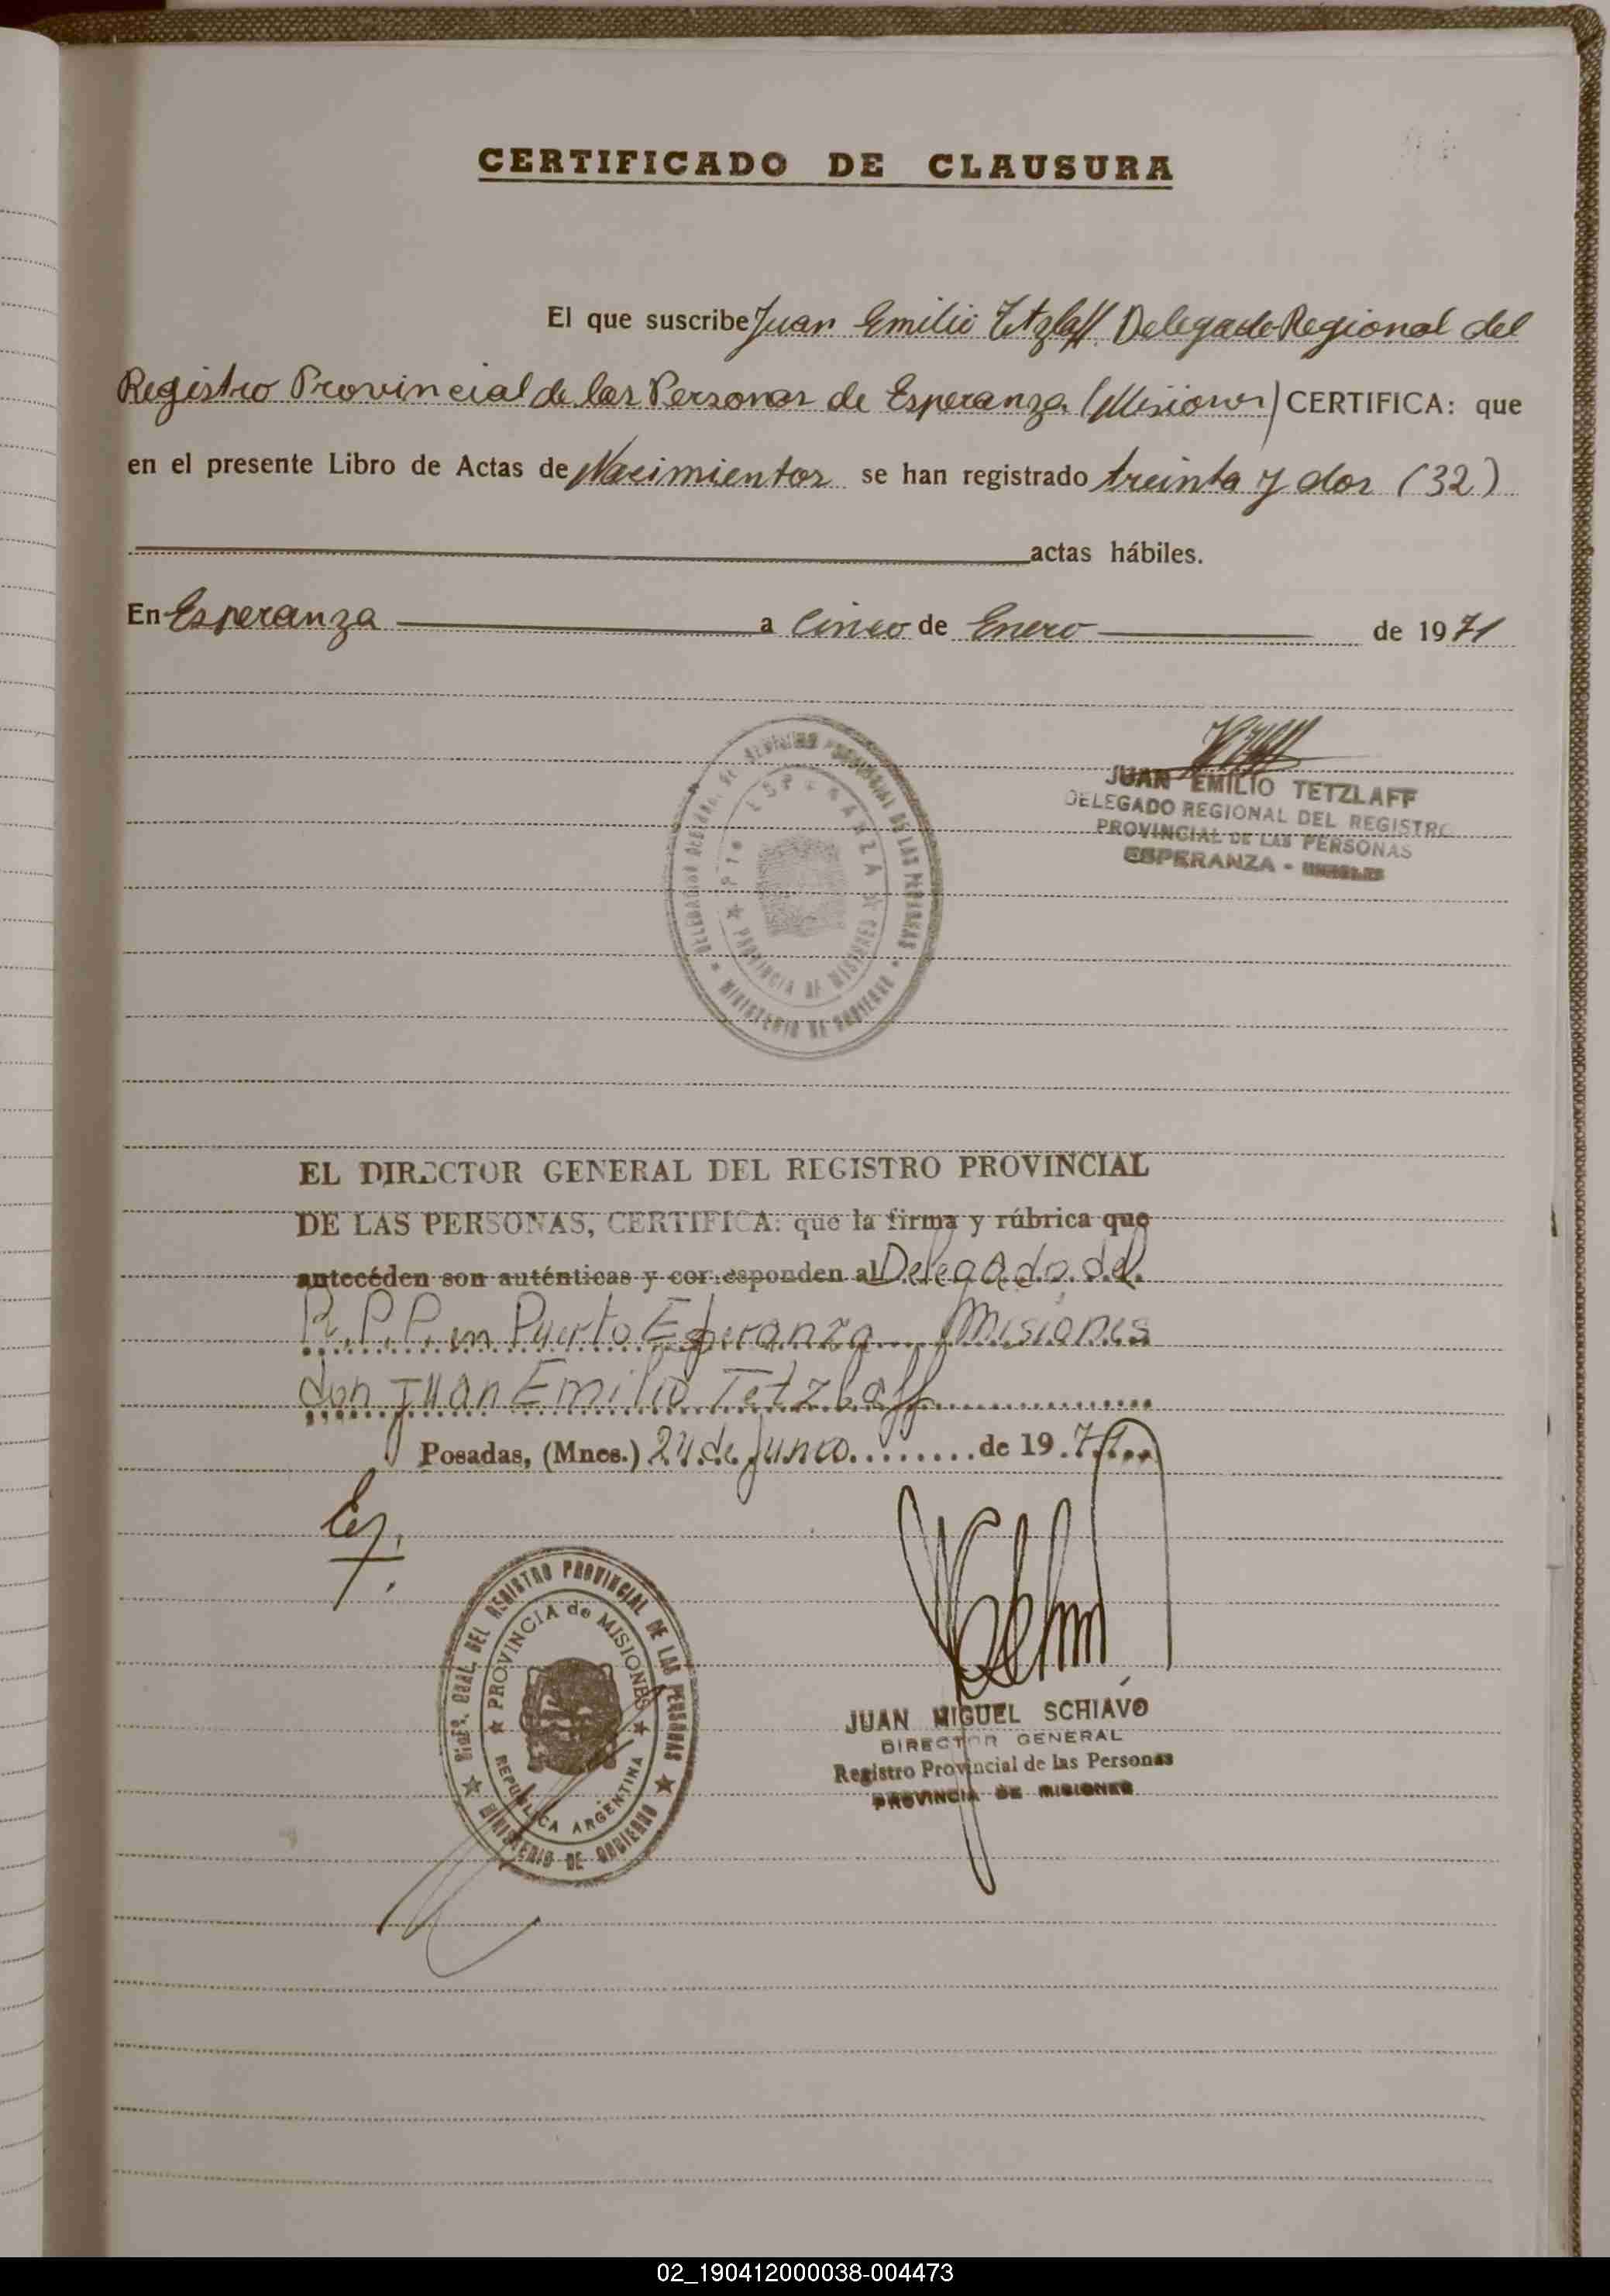 CERTIFICADO DE CLAUSURA
El que suscribe Juan Emilio Tetzlaff, Delegado Regional del
Registro Provincial de las Personas de Esperanza (Misiones) CERTIFICA: que
en el presente Libro de Actas de Nacimientos se han registrado treinta y dos (32)
actas hábiles.
En Esperanza a cinco de Enero de 1971
DELEGACION REGIONAL DE REGISTRO PROVINCIAL DE LAS PERSONAS
Pto ESPERANZA
PROVINCIA DE MISIONES
MINISTERIO DE GOBIERNO
JUAN EMILIO TETZLAFF
DELEGADO REGIONAL DEL REGISTRO
PROVINCIAL DE LAS PERSONAS
ESPERANZA -
EL DIRECTOR GENERAL DEL REGISTRO PROVINCIAL
DE LAS PERSONAS, CERTIFICA: que la firma y rúbrica que
antecéden son auténticas y corresponden al Delegado del
R.P.P. en Puerto Esperanza Misiones
don Juan Emilio Tetzlaff
Posadas, (Mnes.) 24 de junio de 1971
DIREC. GRAL. DEL REGISTRO PROVINCIAL DE LAS PERSONAS
PROVINCIA de MISIONES
REPUBLICA ARGENTINA
MINISTERIO DE GOBIERNO
JUAN MIGUEL SCHIAVO
DIRECTOR GENERAL
Registro Provincial de las Personas
PROVINCIA DE MISIONES
02_190412000038-004473